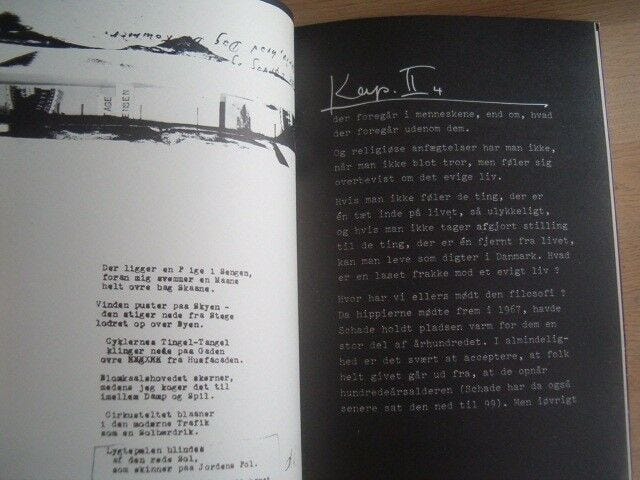 AGE
ENSEN
Der ligger en P ige i Sengen,
foran mig svømmer en Maane
helt ovre bag Skaane.
Vinden puster paa Skyen -
den stiger nede fra Stege
lodret op over Byen.
Cyklernes Tingel-Tangel
klinger nede paa Gaden
ovre fra Husfacaden.
Blomkaalshovedet skørner,
medens jeg koger det til
imellem Damp og Spil.
Cirkusteltet blaaner
i den moderne Trafik
som en Solbærdrik.
Lygtepælen blindes
af den røde Sol,
som skinner paa Jordens Pol.
Kap. II 4
der foregår i menneskene, end om, hvad
der foregår udenom dem.
Og religiøse anfægtelser har man ikke,
når man ikke blot tror, men føler sig
overbevist om det evige liv.
Hvis man ikke føler de ting, der er
én tæt inde på livet, så ulykkeligt,
og hvis man ikke tager afgjort stilling
til de ting, der er én fjernt fra livet,
kan man leve som digter i Danmark. Hvad
er en laset frakke mod et evigt liv ?
Hvor har vi ellers mødt den filosofi ?
Da hippierne mødte frem i 1967, havde
Schade holdt pladsen varm for dem en
stor del af århundredet. I almindelig-
hed er det svært at acceptere, at folk
helt givet går ud fra, at de opnår
hundredeårsalderen (Schade har da også
senere sat den ned til 99). Men iøvrigt